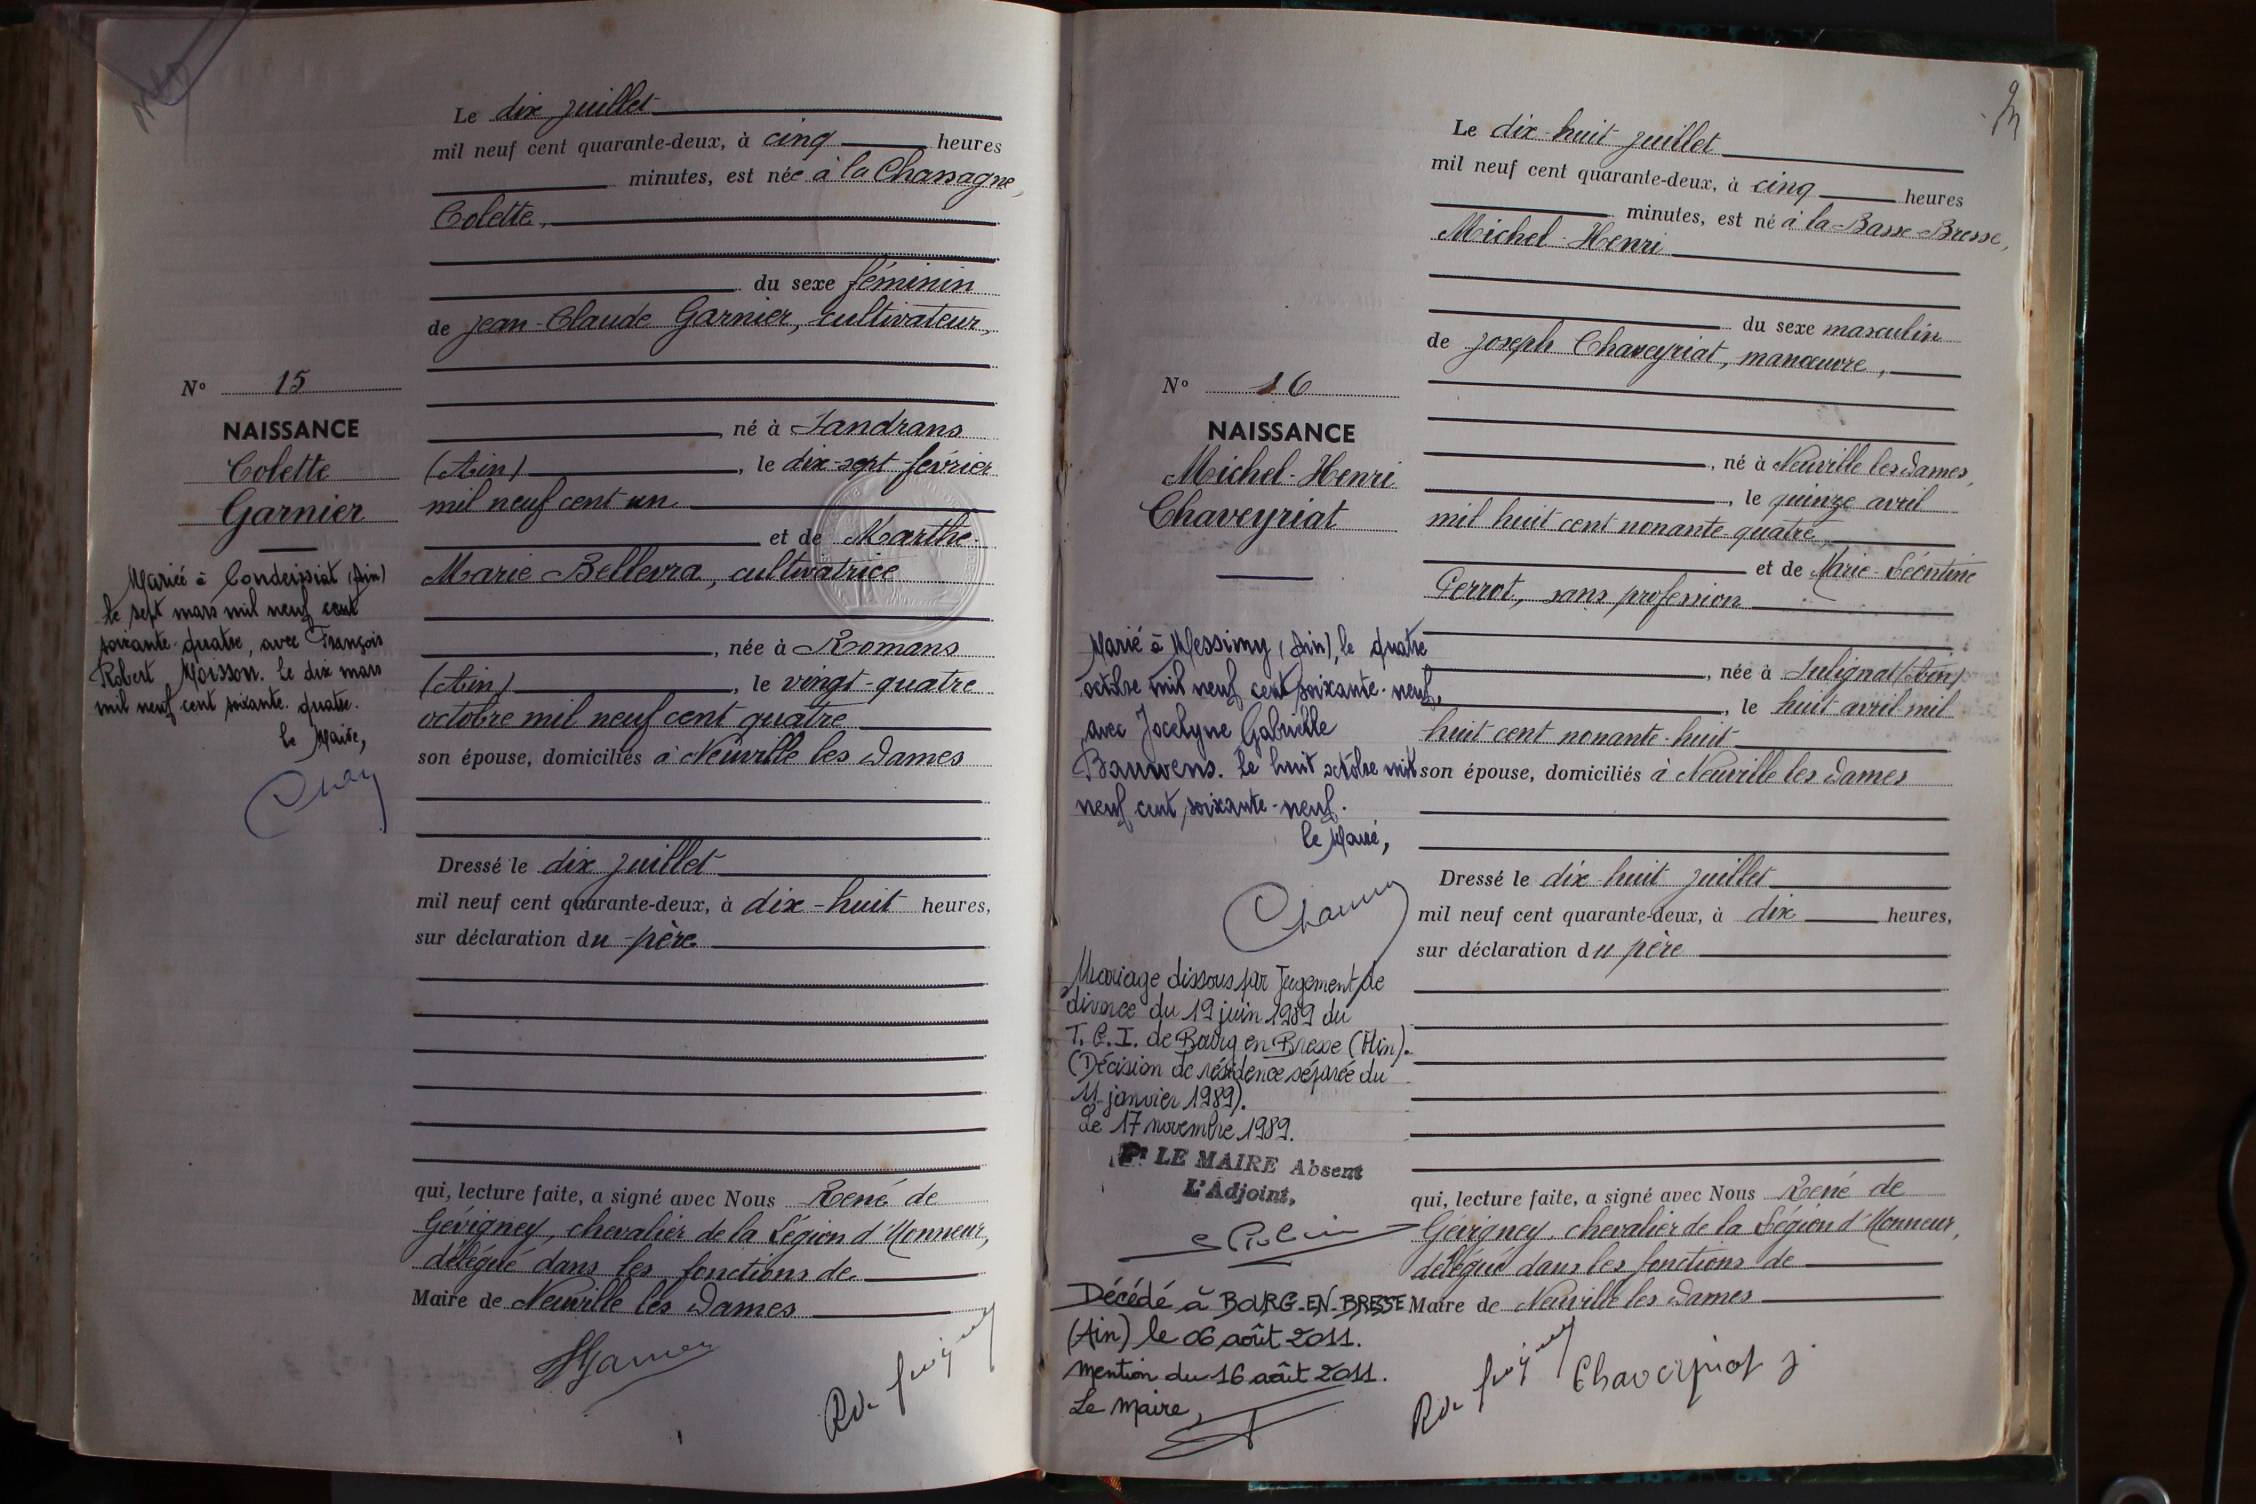 Le dix juillet
mil neuf cent quarante-deux, à cinq heures
minutes, est née à la Chassagne,
Colette,
du sexe féminin
de Jean-Claude Garnier, cultivateur,
né à Sandrans
(Ain), le dix-sept février
mil neuf cent un
et de Marthe-
Marie Bellevra, cultivatrice
, née à Romans
(Ain), le vingt-quatre
octobre mil neuf cent quatre
son épouse, domiciliés à Neuville les Dames
Dressé le dix juillet
mil neuf cent quarante-deux, à dix-huit heures,
sur déclaration du père
qui, lecture faite, a signé avec Nous René de
Gévigney, chevalier de la Légion d'Honneur,
délégué dans les fonctions de
Maire de Neuville les Dames
N° 15
NAISSANCE
Colette
Garnier
Mariée à Condeissiat (Ain)
le sept mars mil neuf cent
soixante-quatre, avec François
Robert Moisson. Le dix mars
mil neuf cent soixante-quatre.
Le Maire,
Le dix-huit juillet
mil neuf cent quarante-deux, à cinq heures
minutes, est né à la Basse-Bresse,
Michel-Henri
du sexe masculin
de Joseph Chaveyriat, manœuvre,
, né à Neuville les Dames,
, le quinze avril
mil huit cent nonante-quatre
et de Marie-Léontine
Perrot, sans profession
, née à Sulignat (Ain)
, le huit avril mil
huit cent nonante-huit
son épouse, domiciliés à Neuville les Dames
Dressé le dix-huit juillet
mil neuf cent quarante-deux, à dix heures,
sur déclaration du père
qui, lecture faite, a signé avec Nous René de
Gévigney, chevalier de la Légion d'Honneur,
délégué dans les fonctions de
Maire de Neuville les Dames
Chaveyriat J.
N° 16
NAISSANCE
Michel-Henri
Chaveyriat
Marié à Messimy (Ain), le quatre
octobre mil neuf cent soixante-neuf,
avec Jocelyne Gabrielle
Bauwens. Le huit octobre mil
neuf cent soixante-neuf.
Le Maire,
Mariage dissous par Jugement de
divorce du 19 juin 1989 du
T.G.I. de Bourg en Bresse (Ain).
(Décision de résidence séparée du
11 janvier 1989).
Le 17 novembre 1989.
Pr LE MAIRE Absent
L'Adjoint,
Décédé à BOURG-EN-BRESSE
(Ain) le 06 août 2011.
Mention du 16 août 2011.
Le Maire,